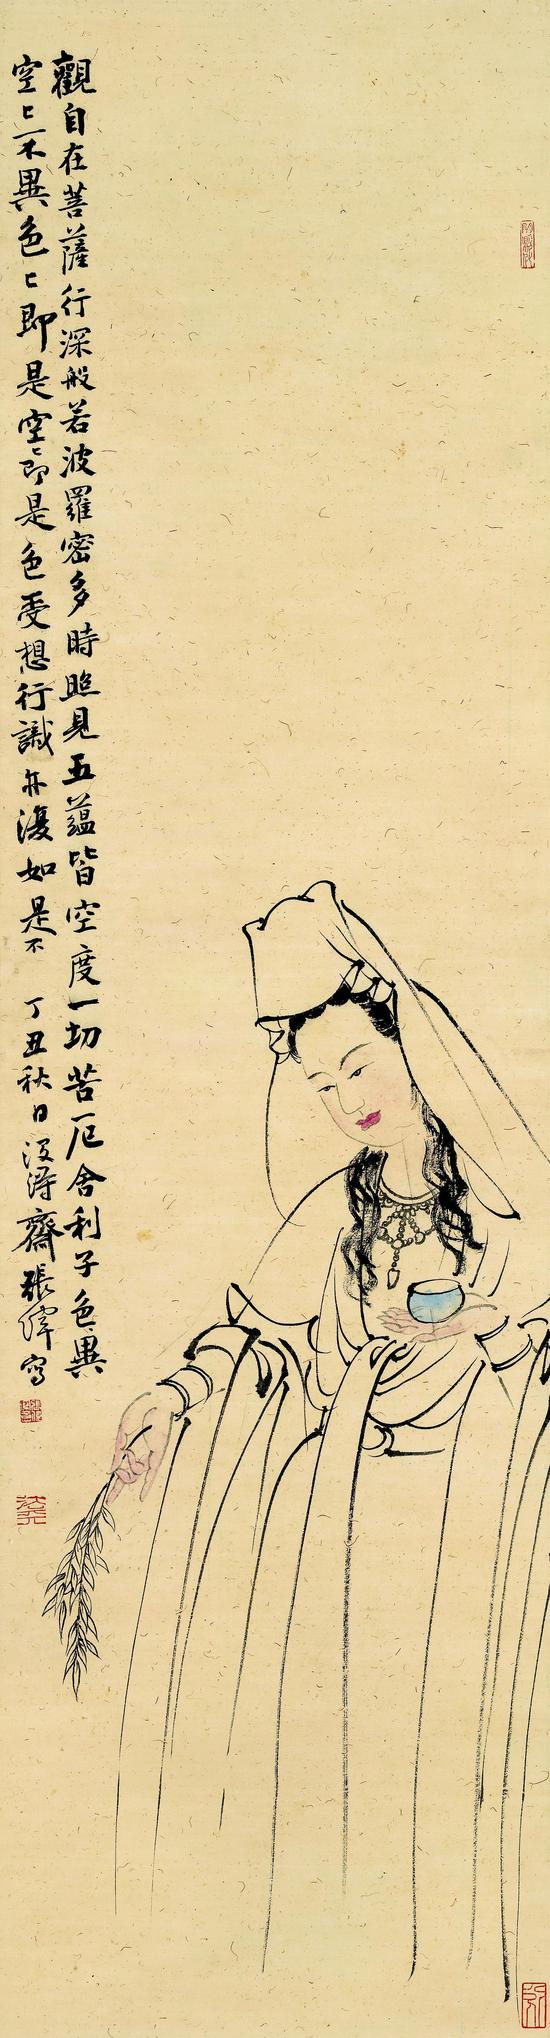 觀自在菩薩行深般若波羅密多時照見五蘊皆空度一切苦厄舍利子色異
空〻不異色〻即是空〻即是色受想行識亦復如是不 丁丑秋日 齋張寫